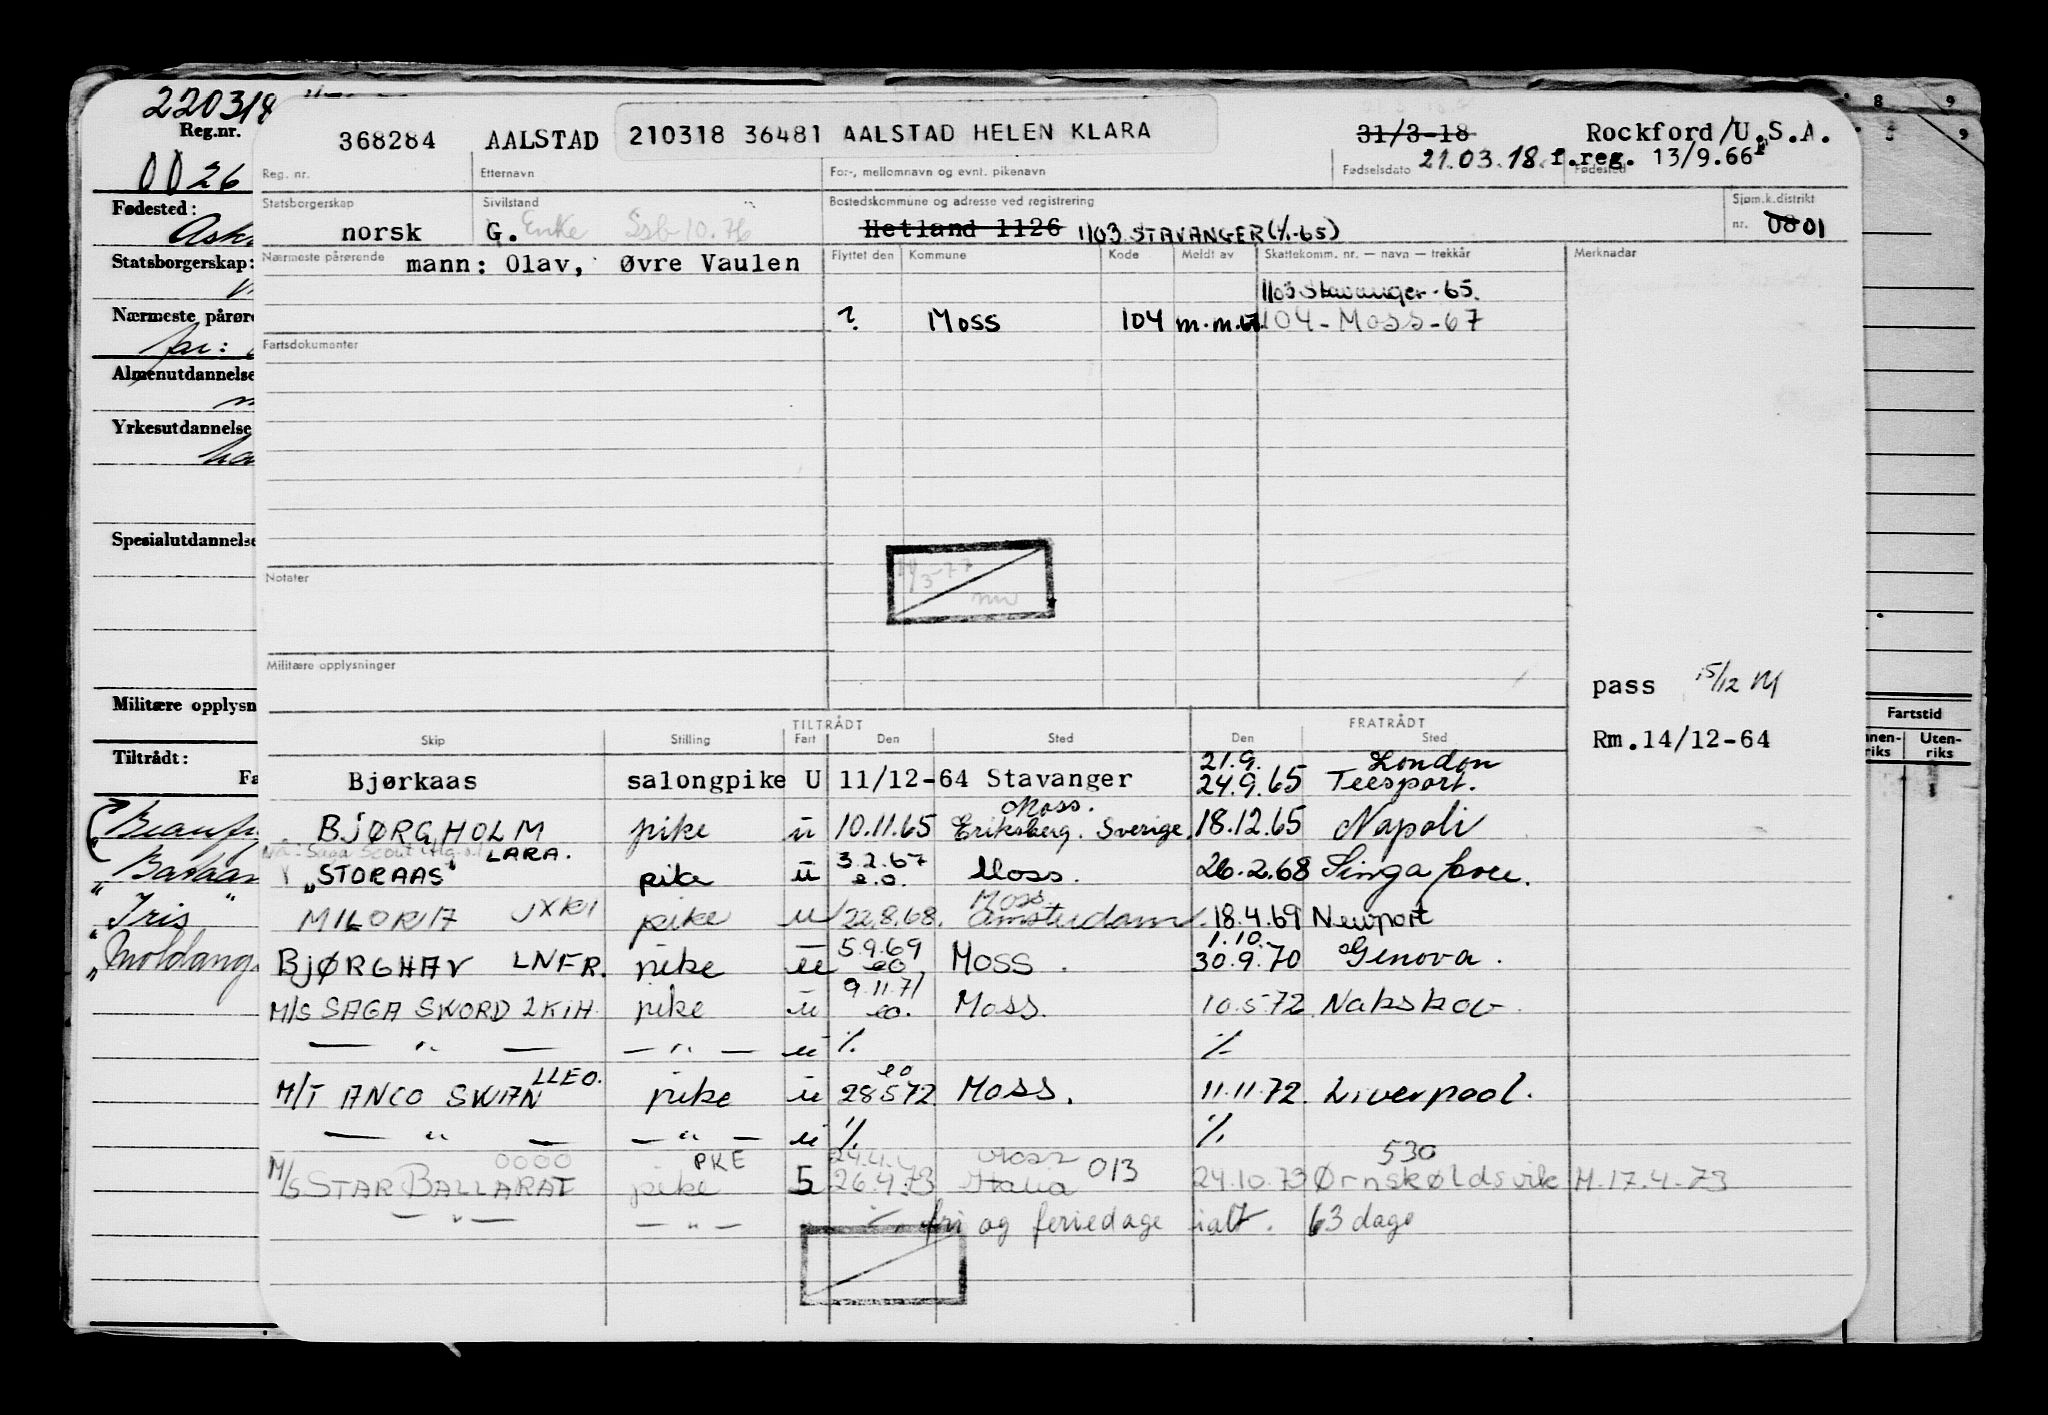 220318
Reg.nr.
0026
Fødested:
Statsborgerskap:
Nærmeste pårøre
far:
Almenutdannelse
Yrkesutdannelse
Spesialutdannelse
Militære opplysn
Tiltrådt:
Fa
Iris
Moldang
368284 AALSTAD 210318 36481 AALSTAD HELEN KLARA 31/3-18 Rockford/U.S.A.
21.03.18 f.reg. 13/9.66
Reg. nr. Etternavn For-, mellomnavn og evnl. pikenavn Fødselsdato Fødested
Statsborgerskap Sivilstand Bostedskommune og adresse ved registrering Sjøm.k.distrikt
norsk G. Enke Ssb 10.76 Hetland 1126 1103 STAVANGER (1/1-65) nr. 08 01
Nærmeste pårørende mann: Olav, Øvre Vaulen Flyttet den Kommune Kode Meldt av Skattekomm. nr. — navn — trekkår Merknader
1103 Stavanger-65.
? Moss 104 m.m.67. 104-Moss-67
Fartsdokumenter
Notater
Militære opplysninger
pass 15/12 M
Rm.14/12-64
TILTRÅDT FRATRÅDT
Skip Stilling Fart Den Sted Den Sted
21.9. London
Bjørkaas salongpike U 11/12-64 Stavanger 24.9.65 Teesport.
Moss.
BJØRGHOLM pike u 10.11.65 Eriksberg. Sverige. 18.12.65 Napoli
LARA.
3.2.67
"STORAAS" pike u e.o. Moss. 26.2.68 Singapore.
Moss
MILORIA JXRI pike u 22.8.68. Amsterdam. 18.4.69 Newport
5.9.69 1.10.
BJØRGHAV LNFR. pike u eo Moss. 30.9.70 Genova.
9.11.71
M/S SAGA SWORD LKIH pike u eo. Moss. 10.5.72 Nakskov.
— " — — " — u ./. ./.
LLEO. eo
M/T ANCO SWAN pike u 28.5.72 Moss. 11.11.72. Liverpool.
— " — — " — u ./. ./.
0000 PKE Moss 530
M/S STAR BALLARAT pike 5 26.4.73 Italia 013 24.10.73 Ørnskøldsvik M.17.4.73
— " — — " — ./. fri og feriedage ialt. 63 dage
8 9
9
Fartstid
Uten-
riks riks